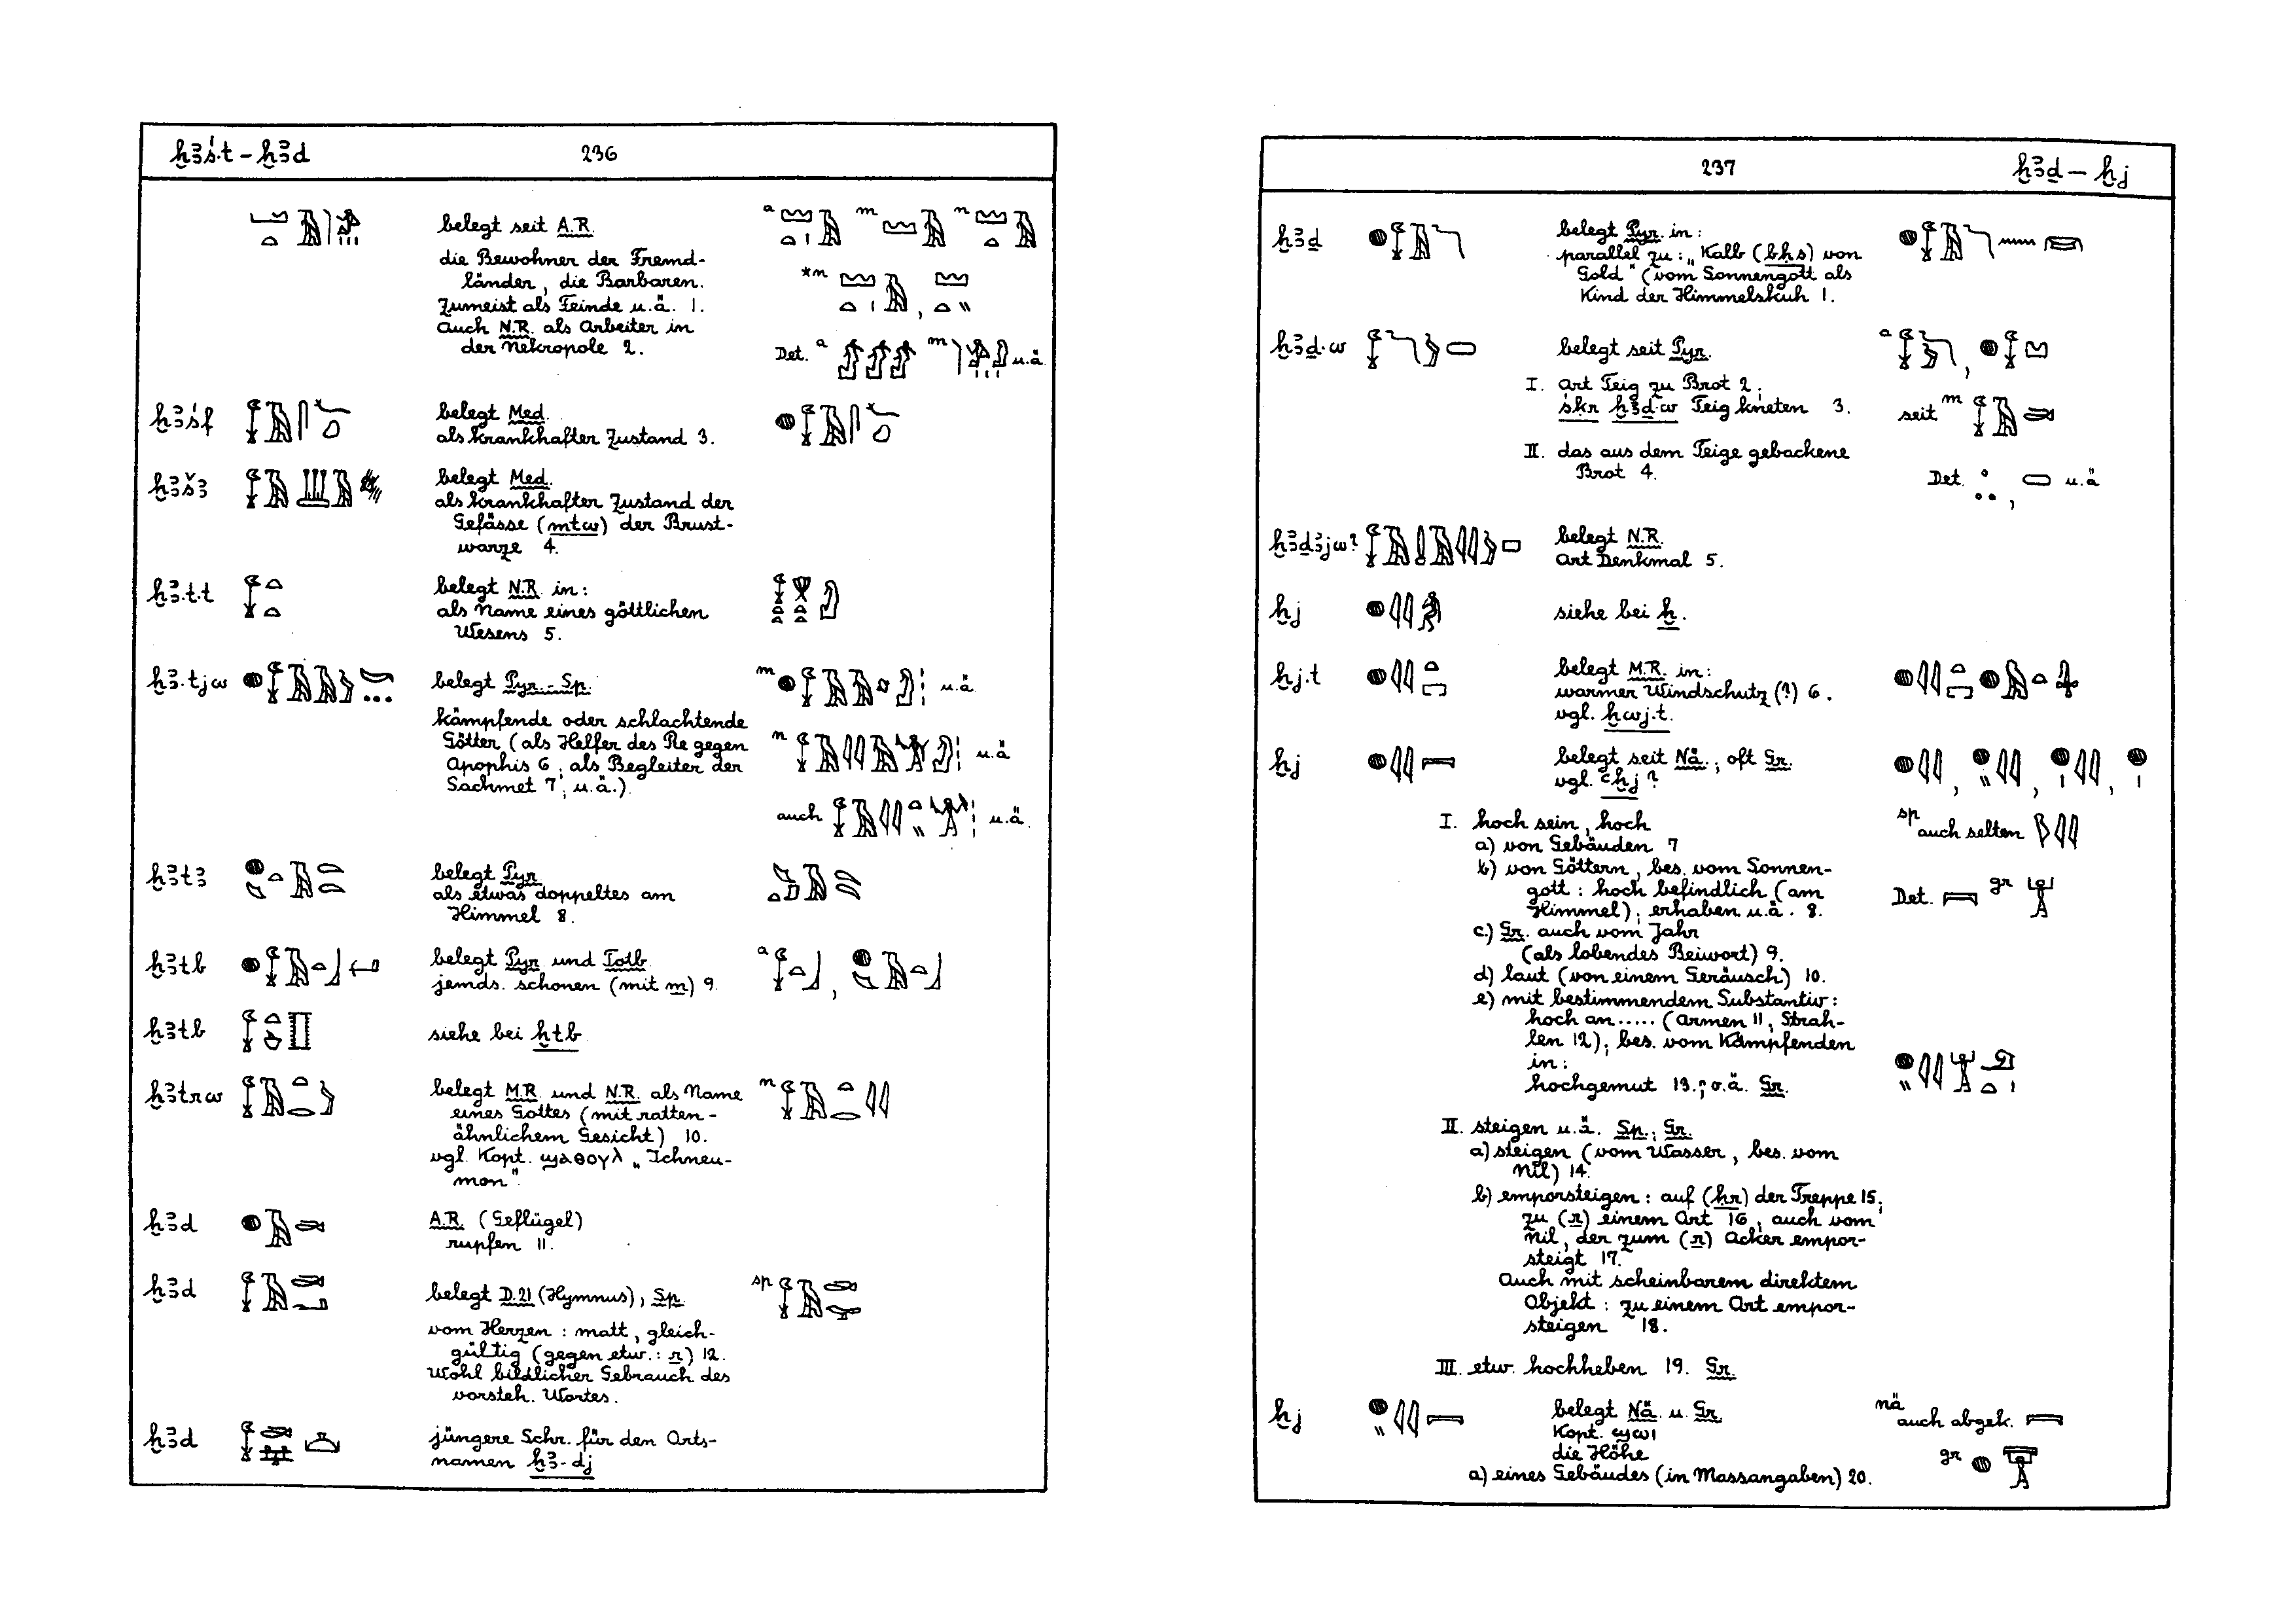 ḫꜣś.t – ḫꜣd 236
belegt seit A.R.
die Bewohner der Fremd-
länder, die Barbaren.
Zumeist als Feinde u.ä. 1.
Auch N.R. als Arbeiter in
der Nekropole 2.
a m n
*n
Det. a m u.ä.
ḫꜣśf belegt Med.
als krankhafter Zustand 3.
ḫꜣšꜣ belegt Med.
als krankhafter Zustand der
Gefässe (mtw) der Brust-
warze 4.
ḫꜣ.t.t belegt N.R. in:
als Name eines göttlichen
Wesens 5.
ḫꜣ.tjw belegt Pyr.–Sp. m u.ä.
kämpfende oder schlachtende
Götter (als Helfer des Re gegen
Apophis 6; als Begleiter der
Sachmet 7; u.ä.)
n u.ä.
auch u.ä.
ḫꜣtꜣ belegt Pyr.
als etwas doppeltes am
Himmel 8.
ḫꜣtb belegt Pyr. und Totb. a
jemds. schonen (mit m) 9.
ḫꜣtb siehe bei ḫtb
ḫꜣtrw belegt M.R. und N.R. als Name n
eines Gottes (mit ratten-
ähnlichem Gesicht) 10.
vgl. Kopt. ϣⲁⲑⲟⲩⲗ „Ichneu-
mon“.
ḫꜣd A.R. (Geflügel)
rupfen 11.
ḫꜣd belegt D.21 (Hymnus), Sp. sp
vom Herzen: matt, gleich-
gültig (gegen etw.: r) 12.
Wohl bildlicher Gebrauch des
vorsteh. Wortes.
ḫꜣd jüngere Schr. für den Orts-
namen ḫꜣ-dj
237 ḫꜣḏ – ḫj
ḫꜣḏ belegt Pyr. in:
parallel zu: „Kalb (bḥs) von
Gold“ (vom Sonnengott als
Kind der Himmelskuh 1.
ḫꜣḏ.w belegt seit Pyr. a
I. Art Teig zu Brot 2;
śḳr ḫꜣḏ.w Teig kneten 3. seit m
II. das aus dem Teige gebackene
Brot 4. Det. u.ä.
ḫꜣḏꜣjw? belegt N.R.
Art Denkmal 5.
ḫj siehe bei ḫ.
ḫj.t belegt M.R. in:
warmer Windschutz (?) 6.
vgl. ḫwj.t.
ḫj belegt seit Nä., oft Gr.
vgl. ꜥḫj?
I. hoch sein, hoch sp auch selten
a) von Gebäuden 7
b) von Göttern, bes. vom Sonnen-
gott: hoch befindlich (am Det. gr
Himmel); erhaben u.ä. 8.
c) Gr. auch vom Jahr
(als lobendes Beiwort) 9.
d) laut (von einem Geräusch) 10.
e) mit bestimmendem Substantiv:
hoch an ..... (Armen 11, Strah-
len 12); bes. vom Kämpfenden
in:
hochgemut 13.; o.ä. Gr.
II. steigen u.ä. Sp.; Gr.
a) steigen (vom Wasser, bes. vom
Nil) 14.
b) emporsteigen: auf (ḥr) der Treppe 15;
zu (r) einem Ort 16, auch vom
Nil, der zum (r) Acker empor-
steigt 17.
Auch mit scheinbarem direktem
Objekt: zu einem Ort empor-
steigen 18.
III. etw. hochheben 19. Gr.
ḫj belegt Nä. u. Gr. nä auch abgek.
Kopt. ϣⲱⲓ
die Höhe gr
a) eines Gebäudes (in Massangaben) 20.